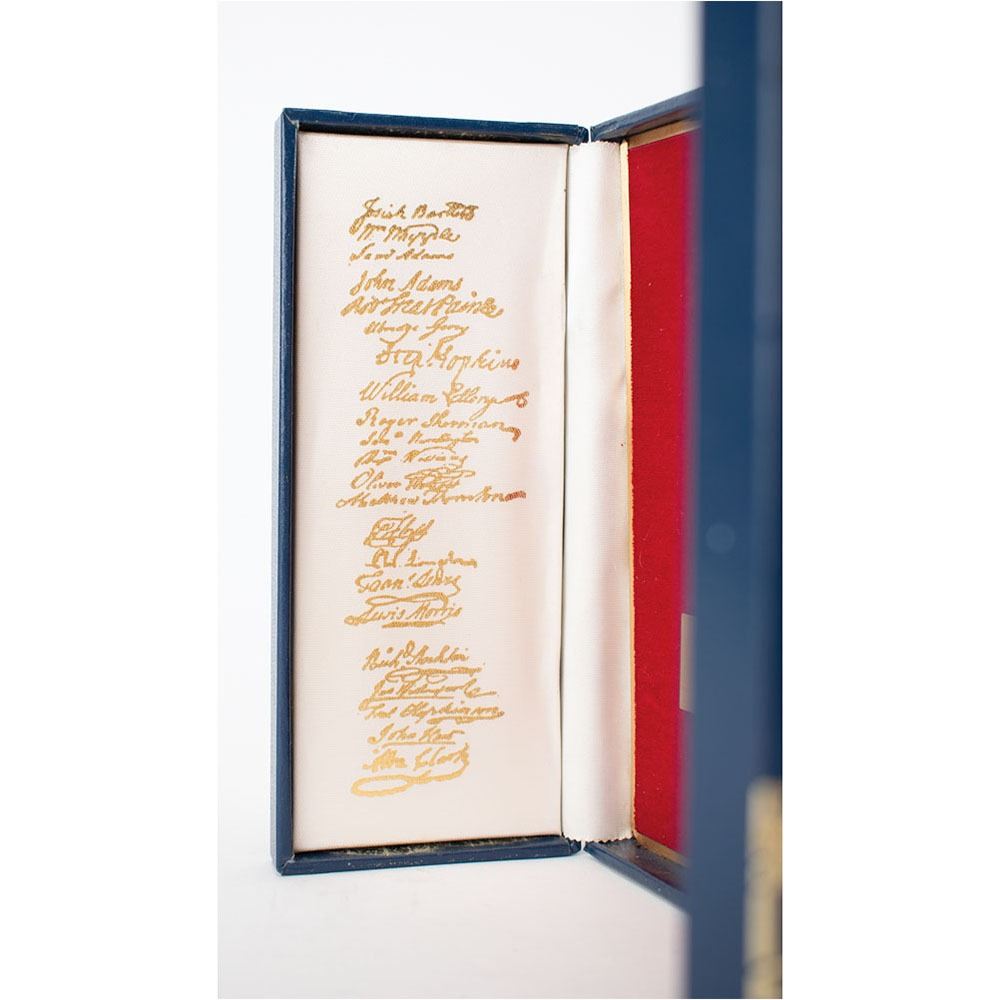 Josiah Bartlett
Wm Whipple
Saml Adams
John Adams
Robt Treat Paine
Elbridge Gerry
Step. Hopkins
William Ellery
Roger Sherman
Saml Huntington
Wm Williams
Oliver Wolcott
Matthew Thornton
Wm Floyd
Phil. Livingston
Frans. Lewis
Lewis Morris
Richd. Stockton
Jno Witherspoon
Fras. Hopkinson
John Hart
Abra Clark